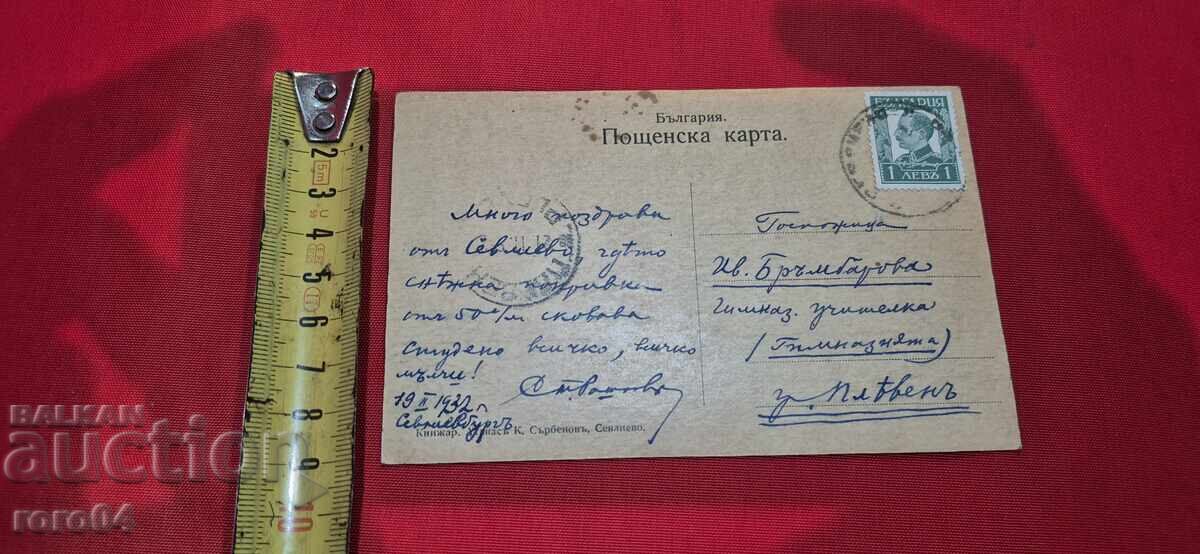 България.
Пощенска карта.
БЪЛГАРИЯ
1 ЛЕВЪ 1
Много поздрави
отъ Севлиево гдѣто
снѣжна покривка
отъ 50 с/м. сковава
студено всичко, всичко
мълчи!
19 II 1932 г.
Севлиевбургъ
Книжар. К. Сърбеновъ, Севлиево.
Госпожица
Ив. Бръмбарова
Гимназ. учителка
(Гимназията)
гр. Плѣвенъ
2
3
4
5
6
7
8
9
10
5m
BALKAN
auction
roro04